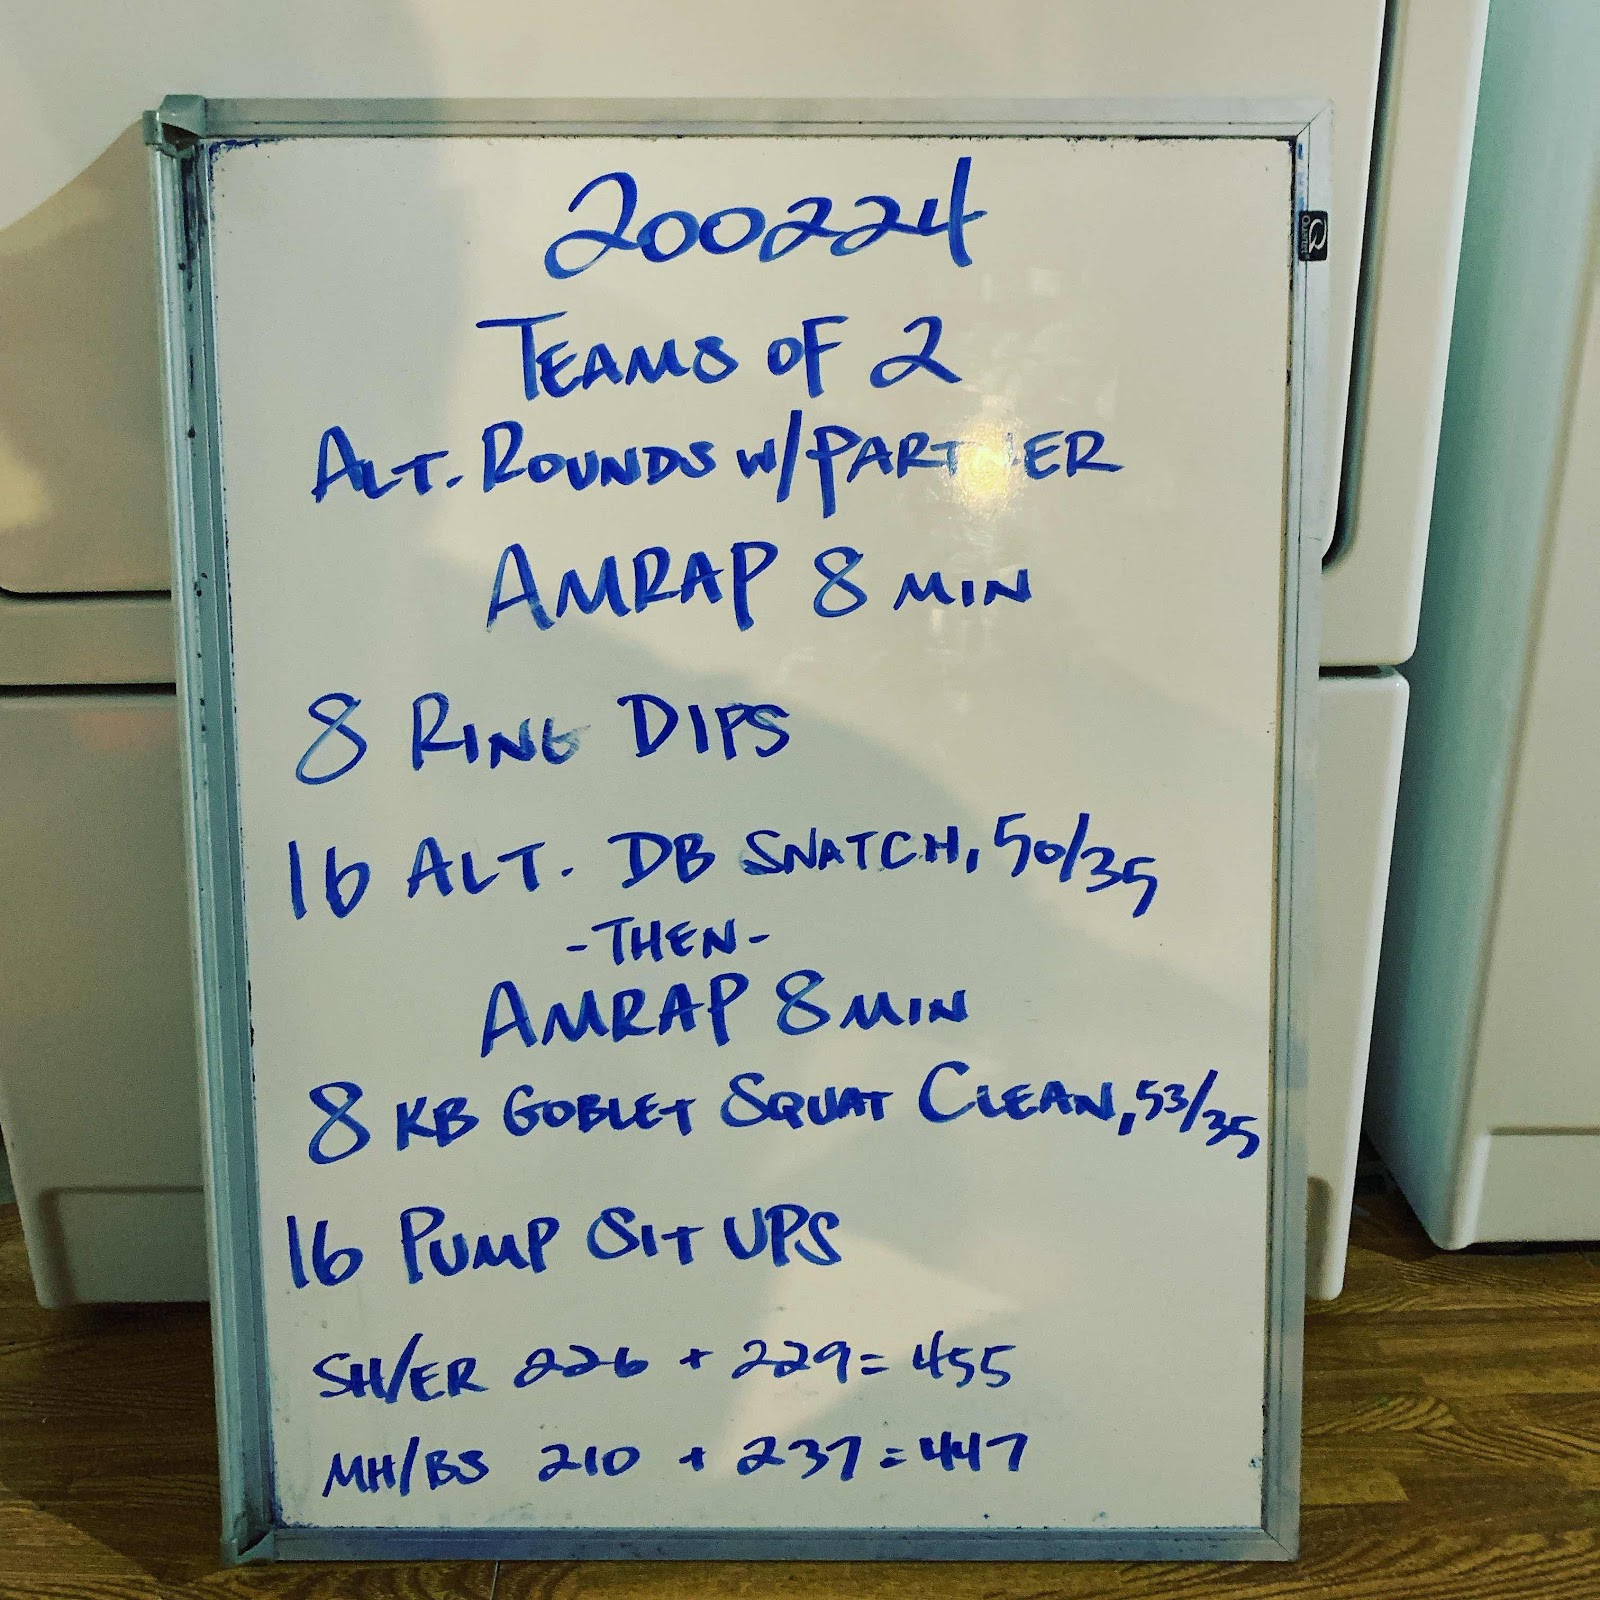 200224
TEAMS OF 2
ALT. ROUNDS W/PARTNER
AMRAP 8 MIN
8 RING DIPS
16 ALT. DB SNATCH, 50/35
-THEN-
AMRAP 8 MIN
8 KB GOBLET SQUAT CLEAN, 53/35
16 PUMP SIT UPS
SH/ER 226 + 229 = 455
MH/BS 210 + 237 = 447
Q
QUARTET